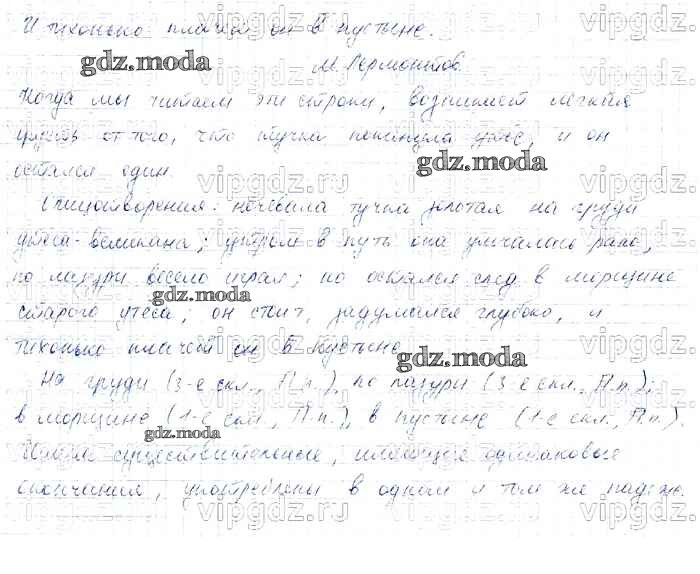 И тихонько плачет он в пустыне.
М. Лермонтов.
Когда мы читаем эти строки, возникает лёгкая
грусть от того, что тучка покинула утёс, и он
остался один.
Олицетворения: ночевала тучка золотая на груди
утёса-великана; утром в путь она умчалась рано,
по лазури весело играя; но остался след в морщине
старого утёса; он стоит, задумался глубоко, и
тихонько плачет он в пустыне.
На груди (3-е скл., П.п.), по лазури (3-е скл., П.п.);
в морщине (1-е скл., П.п.), в пустыне (1-е скл., П.п.).
существительные, имеющие одинаковые
окончания, употреблены в одном и том же падеже.
gdz.moda
gdz.moda
gdz.moda
gdz.moda
gdz.moda
vipgdz.ru